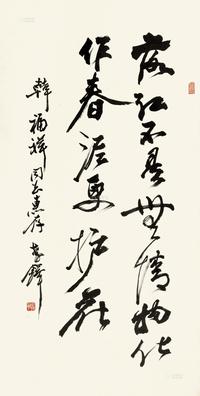 落红不是无情物化
作春泥更护花
韩福祥同志惠存